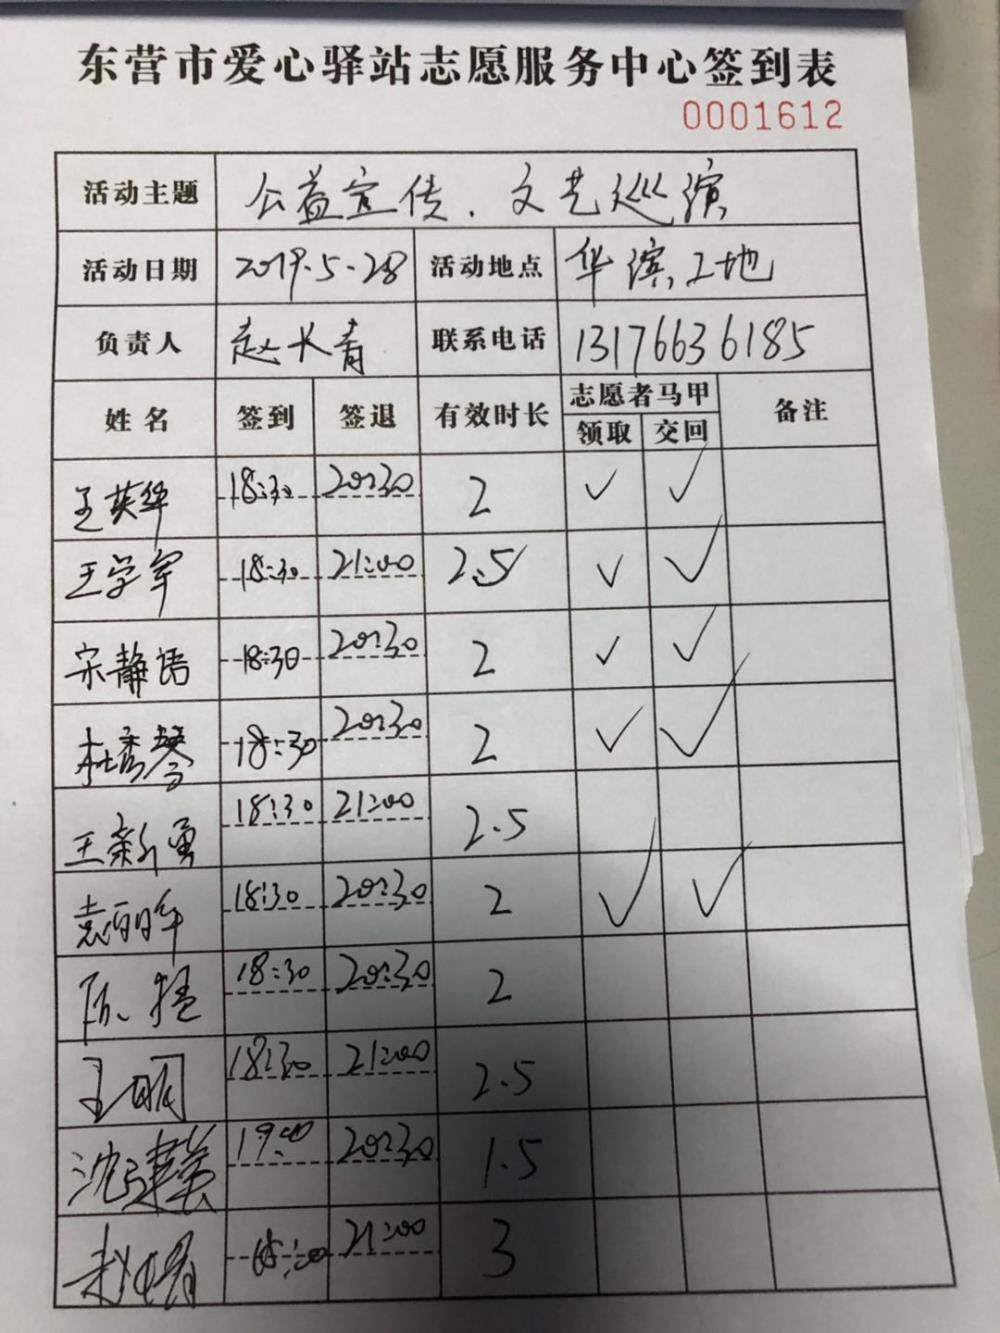 东营市爱心驿站志愿服务中心签到表
0001612
活动主题 公益宣传、文艺巡演
活动日期 2019.5.28 活动地点 华滨工地
负责人 赵长青 联系电话 13176636185
姓名 签到 签退 有效时长 志愿者马甲 备注
领取 交回
王英华 18:30 20:30 2 ✓ ✓
王学军 18:30 21:00 2.5 ✓ ✓
宋静语 18:30 20:30 2 ✓ ✓
杜秀琴 18:30 20:30 2 ✓ ✓
王新勇 18:30 21:00 2.5
袁丽华 18:30 20:30 2 ✓ ✓
18:30 20:30 2
王明 18:30 21:00 2.5
沈建英 19:00 20:30 1.5
21:00 3